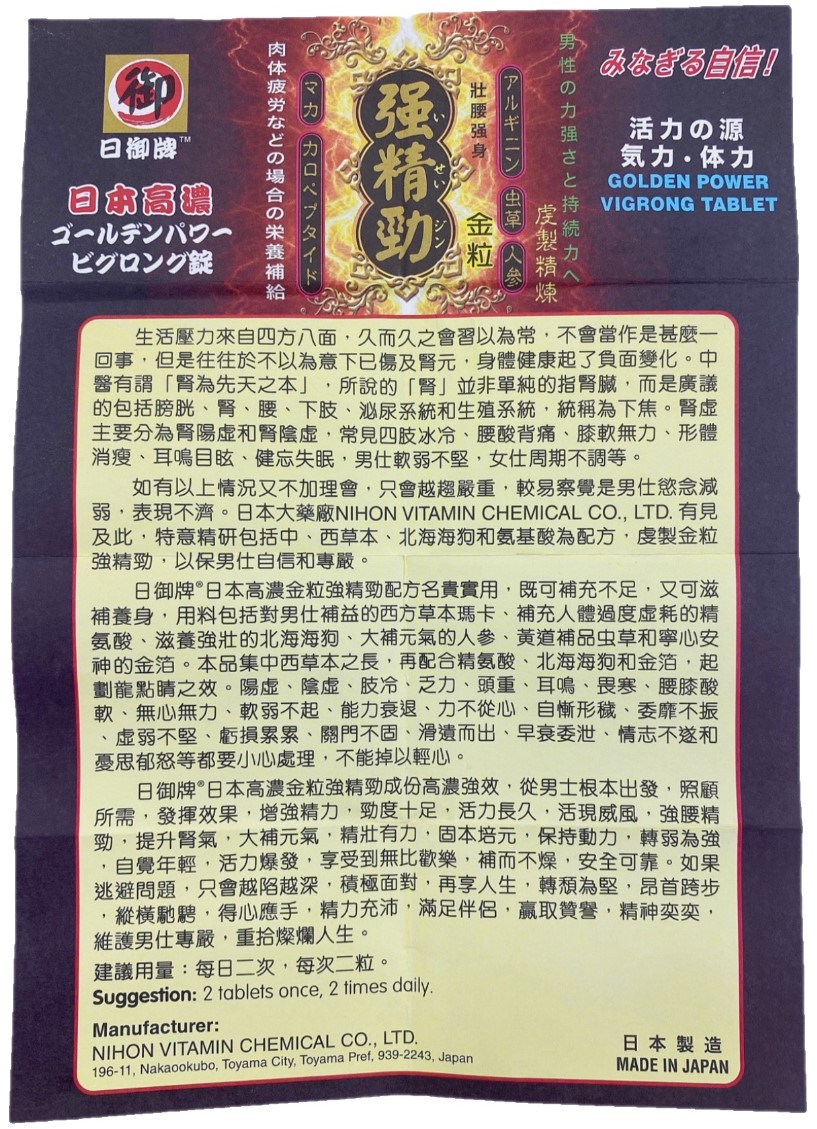 御
日御牌™
日本高濃
ゴールデンパワー
ビグロング錠
肉体疲労などの場合の栄養補給
マカ カロペプタイド
强精勁
いせいジン
壯腰强身
金粒
アルギニン 虫草 人參
虔製精煉
男性の力強さと持続力へ
みなぎる自信!
活力の源
気力・体力
GOLDEN POWER
VIGRONG TABLET
生活壓力來自四方八面，久而久之會習以為常，不會當作是甚麼一
回事，但是往往於不以為意下已傷及腎元，身體健康起了負面變化。中
醫有謂「腎為先天之本」，所說的「腎」並非單純的指腎臟，而是廣議
的包括膀胱、腎、腰、下肢、泌尿系統和生殖系統，統稱為下焦。腎虛
主要分為腎陽虛和腎陰虛，常見四肢冰冷、腰酸背痛、膝軟無力、形體
消瘦、耳鳴目眩、健忘失眠，男仕軟弱不堅，女仕周期不調等。
如有以上情況又不加理會，只會越趨嚴重，較易察覺是男仕慾念減
弱，表現不濟。日本大藥廠NIHON VITAMIN CHEMICAL CO., LTD. 有見
及此，特意精研包括中、西草本、北海海狗和氨基酸為配方，虔製金粒
強精勁，以保男仕自信和專嚴。
日御牌®日本高濃金粒強精勁配方名貴實用，既可補充不足，又可滋
補養身，用料包括對男仕補益的西方草本瑪卡、補充人體過度虛耗的精
氨酸、滋養強壯的北海海狗、大補元氣的人參、黃道補品虫草和寧心安
神的金箔。本品集中西草本之長，再配合精氨酸、北海海狗和金箔，起
劃龍點睛之效。陽虛、陰虛、肢冷、乏力、頭重、耳鳴、畏寒、腰膝酸
軟、無心無力、軟弱不起、能力衰退、力不從心、自慚形穢、委靡不振
、虛弱不堅、虧損累累、關門不固、滑遺而出、早衰委泄、情志不遂和
憂思郁怒等都要小心處理，不能掉以輕心。
日御牌®日本高濃金粒強精勁成份高濃強效，從男士根本出發，照顧
所需，發揮效果，增強精力，勁度十足，活力長久，活現威風，強腰精
勁，提升腎氣，大補元氣，精壯有力，固本培元，保持動力，轉弱為強
，自覺年輕，活力爆發，享受到無比歡樂，補而不燥，安全可靠。如果
逃避問題，只會越陷越深，積極面對，再享人生，轉頹為堅，昂首跨步
，縱橫馳騁，得心應手，精力充沛，滿足伴侶，贏取贊譽，精神奕奕，
維護男仕專嚴，重拾燦爛人生。
建議用量：每日二次，每次二粒。
Suggestion: 2 tablets once, 2 times daily.
Manufacturer:
NIHON VITAMIN CHEMICAL CO., LTD.
196-11, Nakaookubo, Toyama City, Toyama Pref, 939-2243, Japan
日本製造
MADE IN JAPAN